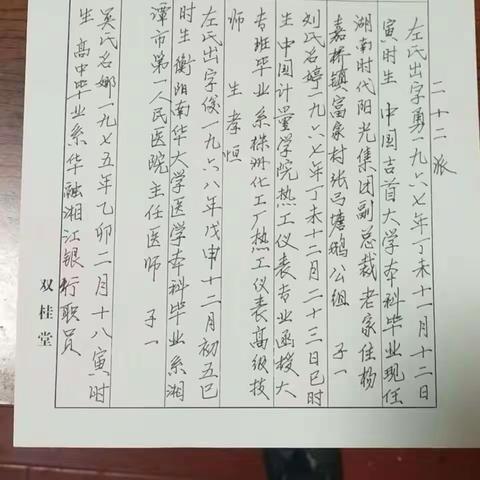 二十二派
左氏出字勇一九六七年丁未十一月十二日
寅时生 中国吉首大学本科毕业现任
湖南时代阳光集团副总裁老家住杨
嘉桥镇富家村张马塘鹅公组 子一
刘氏名婷一九六七年丁未十二月二十三日巳时
生中国计量学院热工仪表专业函授大
专班毕业系株洲化工厂热工仪表高级技
师 生孝恒
左氏出字俊一九六八年戊申十二月初五巳
时生衡阳南华大学医学本科毕业系湘
潭市第一人民医院主任医师 子一
吴氏名娜一九七五年乙卯二月十八寅时
生高中毕业系华融湘江银行职员
双桂堂